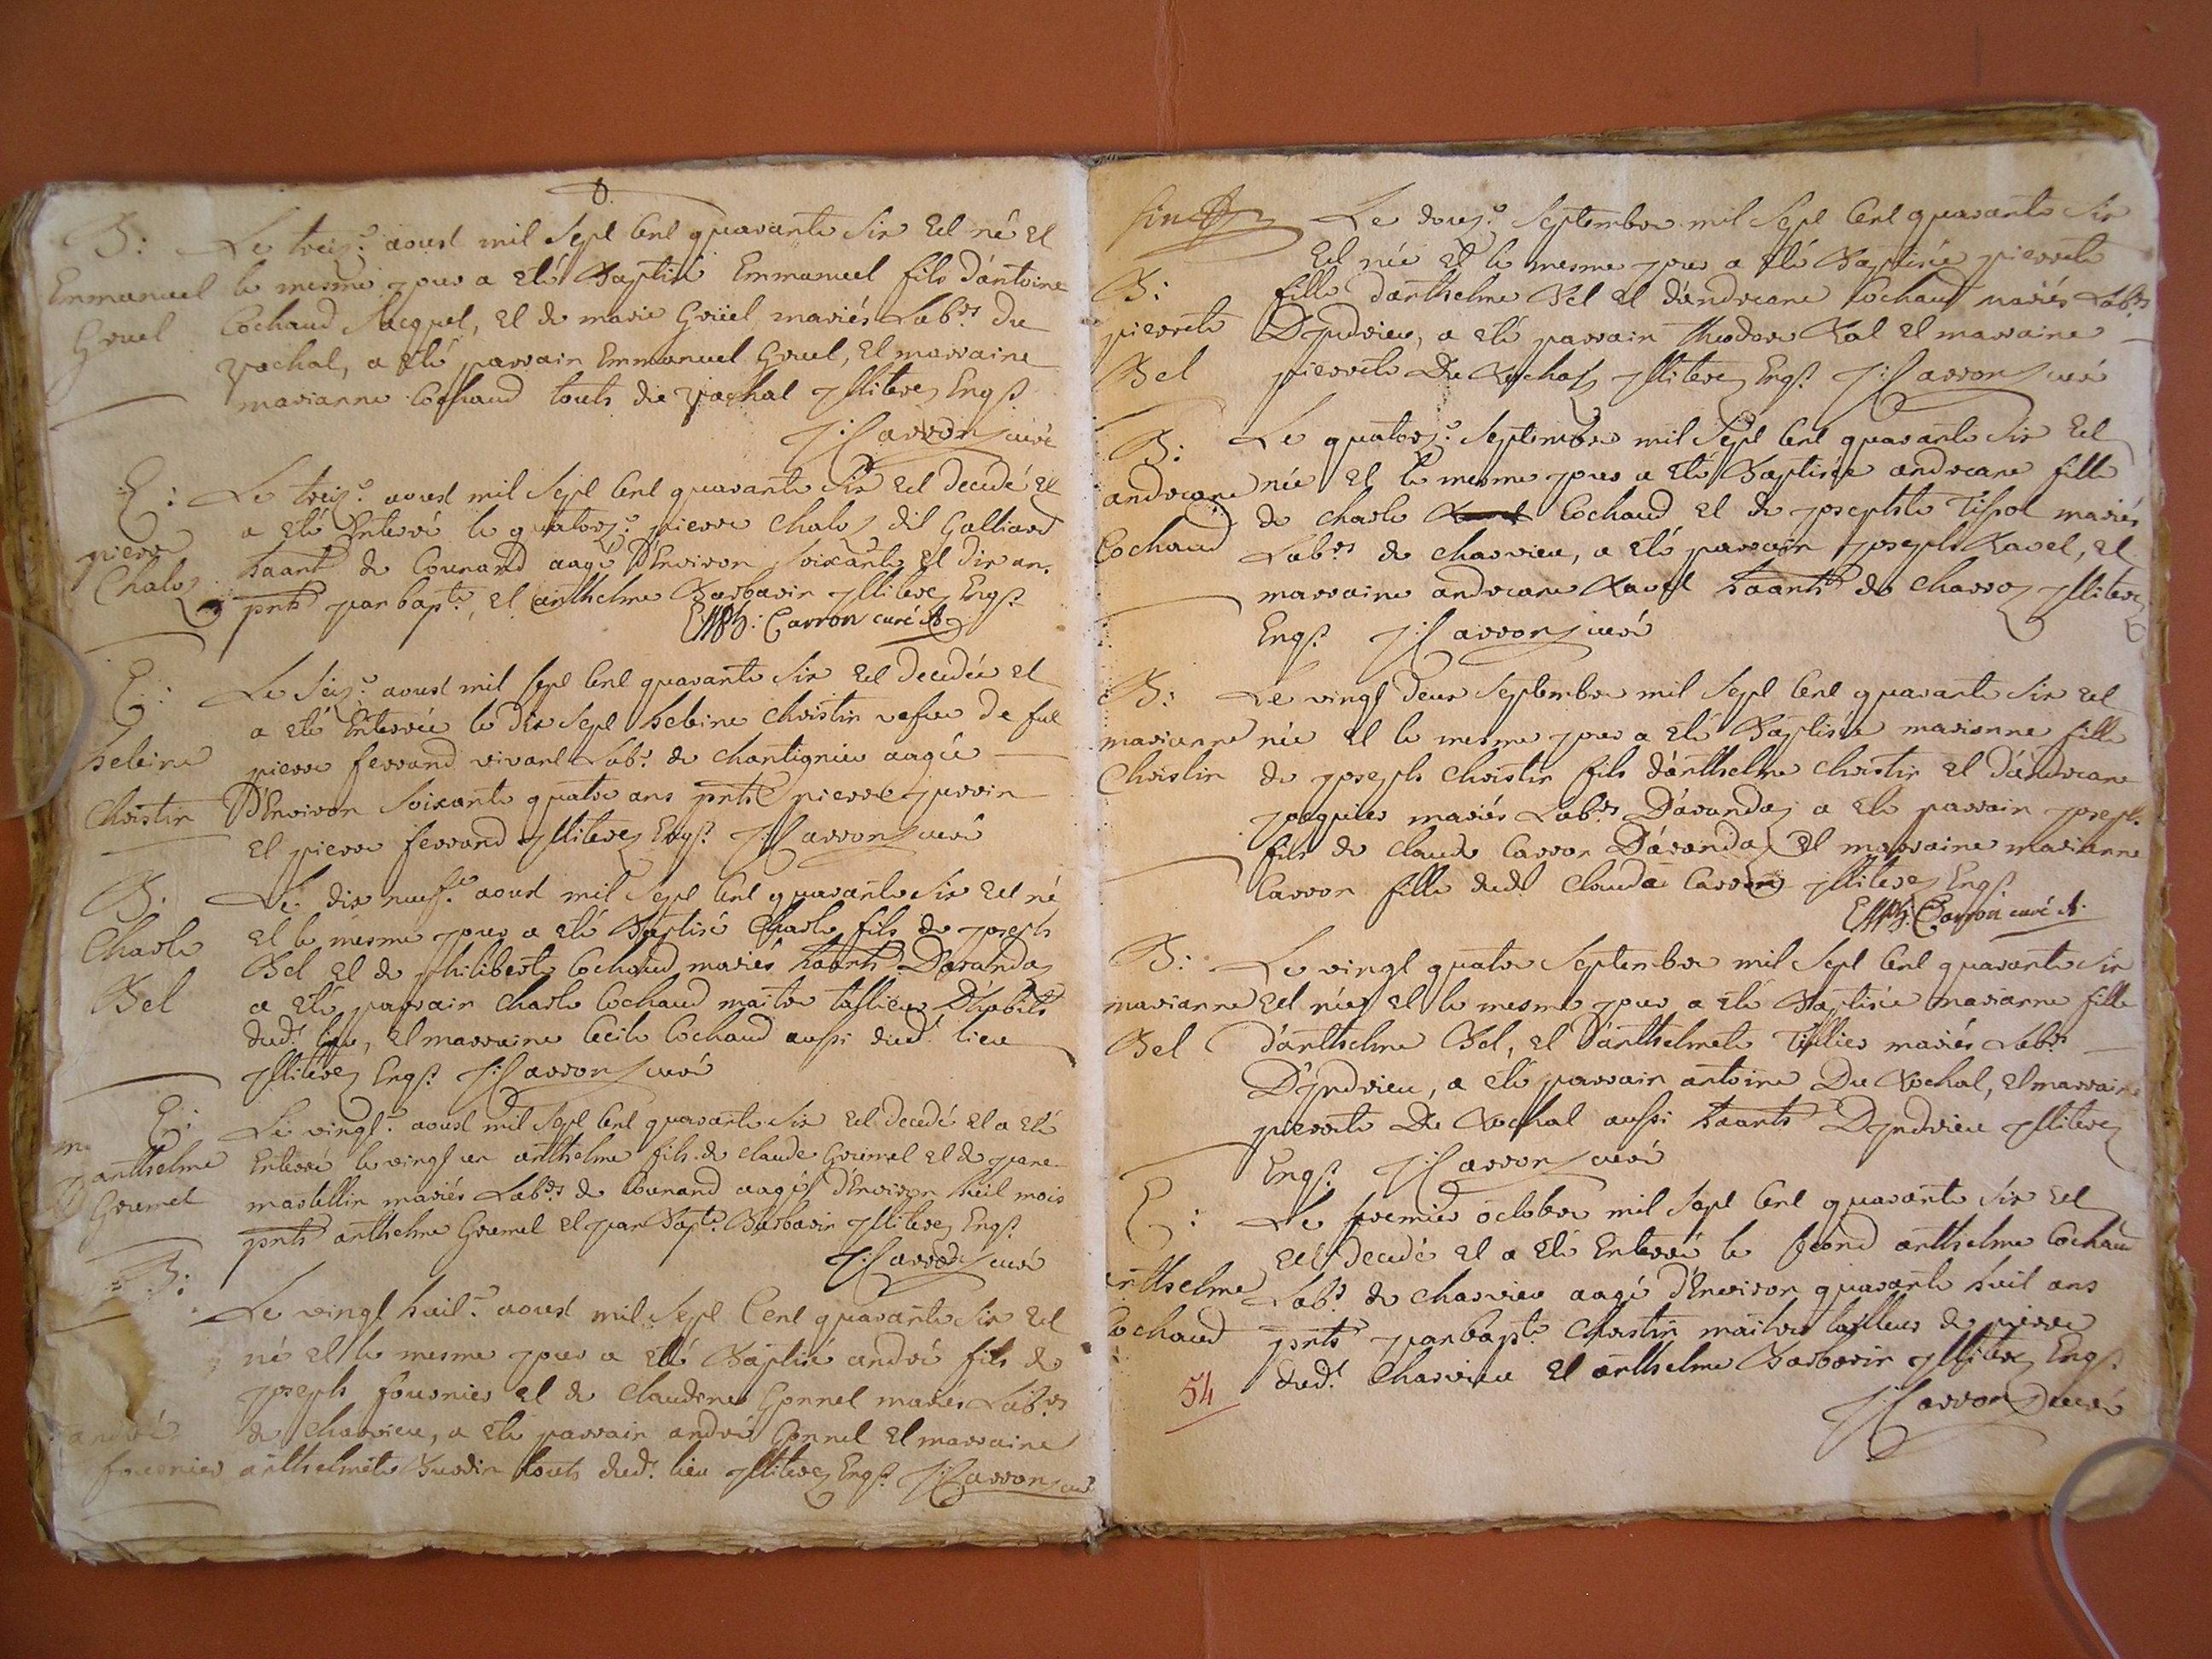 8.
B: Le treiz.e aoust mil Sept Cent quarante Six Est né Et
Emmanuel le mesme jour a Eté Baptisé Emmanuel fils d'antoine
Gruel Cochaud Jacquet, Et de marie Grüel mariés Lab.rs du
vachat, a Eté parrain Emmanuel Gruel, Et marraine
marianne Cochaud touts du vachat jlliterez Enq.s
J: Carron curé
E: Le treiz.e aoust mil Sept Cent quarante Six Est decedé Et
a Eté Enterré le quatorz.e pierre Chaley dit Galliard
pierre haant de Counand aagé d'Environ Soixante Et dix an.
Chaley pnts jean bapt.e, Et anthelme Barbarin jlliterez Enq.s
EMPh: Carron curé A.
E: Le Seiz.e aoust mil Sept Cent quarante Six Est decedée Et
a Eté Enterrée le dix Sept heleine Christin vefue de fut
heleine pierre ferrand vivant Lab.r de chantignieu aagée
Christin D'Environ Soixante quatre ans pnts pierre juvvin
Et pierre ferrand jlliterez Enq.s J: Carron curé
B: Le dix neuf.e aoust mil Sept Cent quarante Six Est né
Charle Et le mesme jour a Eté Baptisé Charle fils de joseph
Bel Bel Et de philiberte Cochaud mariés haants D'arandaz
a Eté parrain Charle Cochaud maitre tallieur D'habits
dud.t lieu, Et marraine Cecile Cochaud aussi dud.t lieu
jlliterez Enq.s J: Carron curé
E: Le vingt.e aoust mil Sept Cent quarante Six Est decedé Et a Eté
anthelme Enterré le vingt un anthelme fils de claude Grumel Et de jeane
Grumel martellin mariés Lab.rs de Counand aagé d'Environ huit mois
pnts anthelme Grumel Et jean Bapt.e Barbarin jlliterez Enq.s
J: Carron curé
B:
Le vingt huit.e aoust mil Sept Cent quarante Six Est
né Et le mesme jour a Eté Baptisé andré fils de
joseph fournier Et de Claudine Gonnet mariés Lab.rs
andré de Charvieu, a Eté parrain andré Gonnet Et marraine
fournier anthelmete Burdin touts dud.t lieu jlliterez Enq.s J: Carron curé
Le douz.e Septembre mil Sept Cent quarante Six
Est née Et le mesme jour a Eté Baptisée pierrete
B: fille d'anthelme Bel Et d'andreane Cochaud mariés Lab.rs
pierrete D'jndrieu, a Eté parrain Et marraine
Bel pierrete Du Rochat jlliterez Enq.s J: Carron curé
B: Le quatorz.e Septembre mil Sept Cent quarante Six Est
andreane née Et le mesme jour a Eté Baptisée andreane fille
de charle Cochaud Et de josephte Tissot mariés
Cochaud Lab.rs de charvieu, a Eté parrain joseph Ravet, Et
marraine andreane Ravet haants de Charvoz jlliterez
Enq.s J: Carron curé
B: Le vingt deux Septembre mil Sept Cent quarante Six Est
marianne née Et le mesme jour a Eté Baptisée marianne fille
Christin de joseph Christin fils d'anthelme Christin Et d'andreane
jacquier mariés Lab.rs D'arandaz a Eté parrain joseph
fils de claude Carron D'arandaz Et marraine marianne
Carron fille dud.t Claude Carron jlliterez Enq.s
EMPh: Carron curé A.
B: Le vingt quatre Septembre mil Sept Cent quarante Six
marianne Est née Et le mesme jour a Eté Baptisée marianne fille
Bel d'anthelme Bel, Et D'anthelmete Tillier mariés Lab.rs
D'jndrieu, a Eté parrain antoine Du Rochat, Et marraine
pierrete Du Rochat aussi haants D'jndrieu jlliterez
Enq.s J: Carron curé
E: Le premier octobre mil Sept Cent quarante Six Est
Est decedé Et a Eté Enterré le second anthelme Cochaud
anthelme Lab.r de charvieu aagé d'Environ quarante huit ans
Cochaud pnts jean bapt.e Christin maitre tallieur de pierre
54 dud.t Charvieu Et anthelme Barbarin jlliterez Enq.s
J: Carron curé